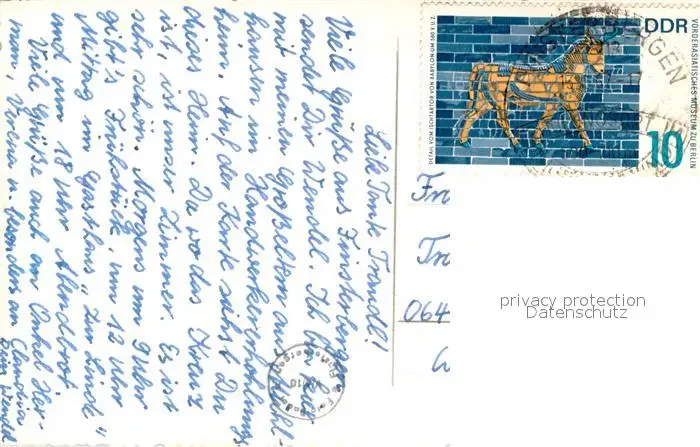 Liebe Tante Traudl!
Viele Grüße aus Finsterbergen
sendet Dir Wendel. Ich bin hier
mit meinen Großeltern im
Handwerkererholungs
heim. Auf der Karte siehst Du
dieses Heim. Da wo das Kreuz
ist, ist unser Zimmer. Es ist
sehr schön. Morgens um 9 Uhr
gibt's Frühstück, um 12 Uhr
Mittag im Gasthaus "Zur Linde"
und um 18 Uhr Abendbrot.
Viele Grüße auch an Onkel Her-
mann, Verena u. besonders an Claudia
Dein Wendel
DDR
10
DETAIL VOM ISCHTARTOR VON BABYLON UM 580 V. U. Z.
VORDERASIATISCHES MUSEUM ZU BERLIN
BERGEN
Fr
Tr
064
privacy protection
Datenschutz